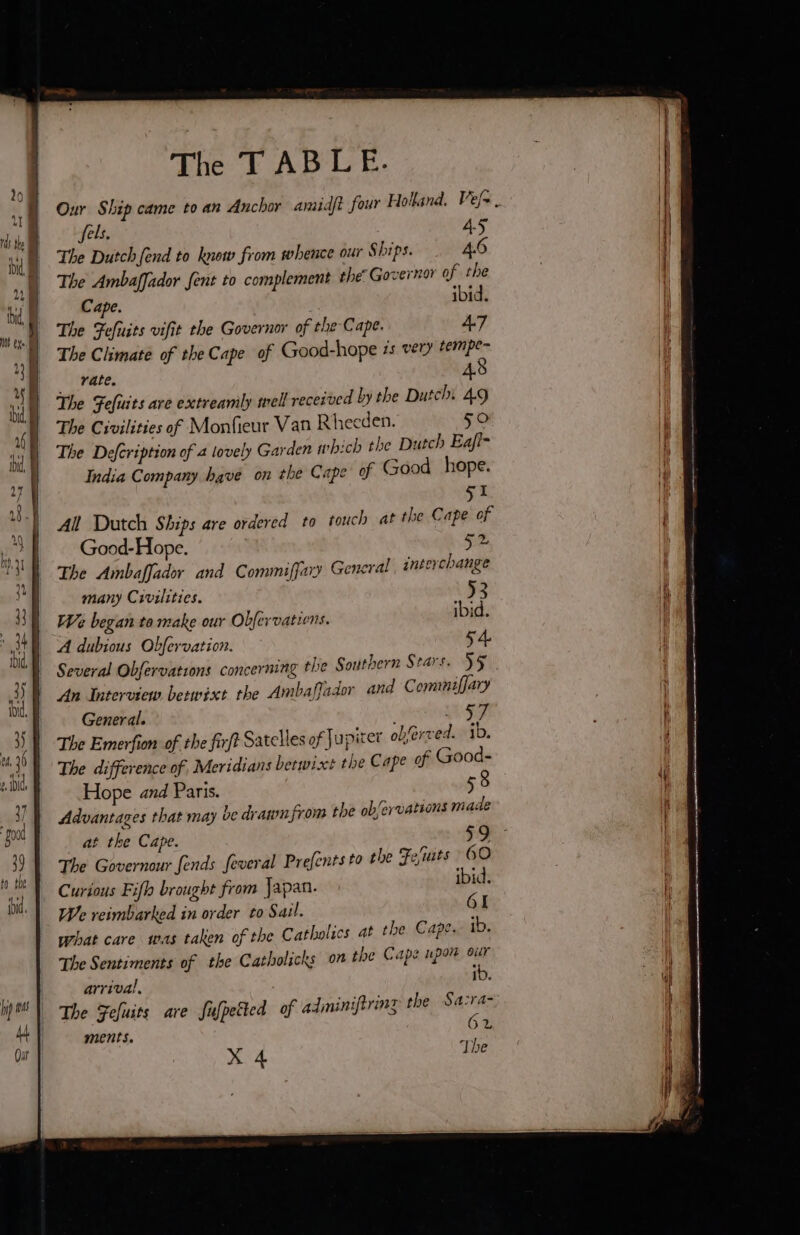 The TABLE.
Our Ship came to an Anchor amidſt four Holland. Veſ-
ſels. 45
The Dutch ſend to know from whence our Ships. 46
The Ambaſſador ſent to complement the Governor of the
Cape. ibid.
The Jeſuits viſit the Governor of the Cape. 47
The Climate of the Cape of Good-hope is very tempe-
rate. 48
The Jeſuits are extreamly well received by the Dutch. 49
The Civilities of Monſieur Van Rheeden. 50
The Deſcription of a lovely Garden which the Dutch Eaſt-
India Company have on the Cape of Good hope.
51
All Dutch Ships are ordered to touch at the Cape of
Good-Hope. 52
The Ambaſſador and Commiſſary General interchange
many Civilities. 53
We began to make our Obſervations. ibid.
A dubious Obſervation. 54
Several Obſervations concerning the Southern Stars. 55
An Interview betwixt the Ambaſſador and Commiſſary
General. 57
The Emerſion of the firſt Satelles of Jupiter obſerved. ib.
The difference of Meridians betwixt the Cape of Good-
Hope and Paris. 58
Advantages that may be drawn from the obſervations made
at the Cape. 59
The Governour ſends ſeveral Preſents to the Jeſuits 60
Curious Fiſh brought from Japan. ibid.
We reimbarked in order to Sail. 61
What care was taken of the Catholics at the Cape. ib.
The Sentiments of the Catholicks on the Cape upon our
arrival. ib.
The Jeſuits are ſuſpected of adminiſtring the Sacra-
ments. 62
X 4 The